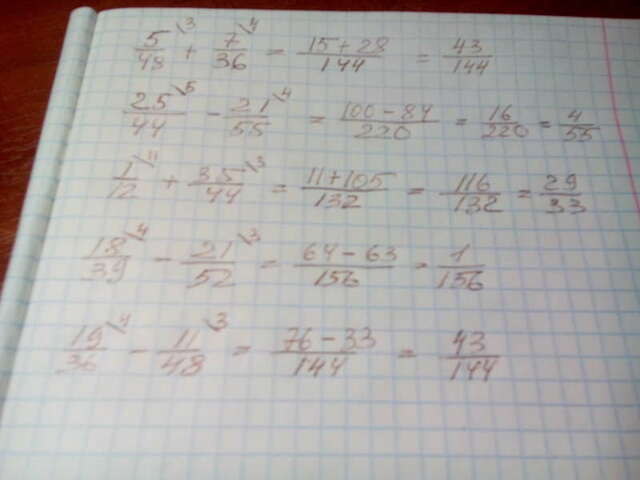 5/48 \3 + 7/36 \4 = 15+28/144 = 43/144
25/44 \5 - 21/55 \4 = 100-84/220 = 16/220 = 4/55
1/12 \11 + 35/44 \3 = 11+105/132 = 116/132 = 29/33
18/39 \4 - 21/52 \3 = 64-63/156 = 1/156
19/36 \4 - 11/48 \3 = 76-33/144 = 43/144